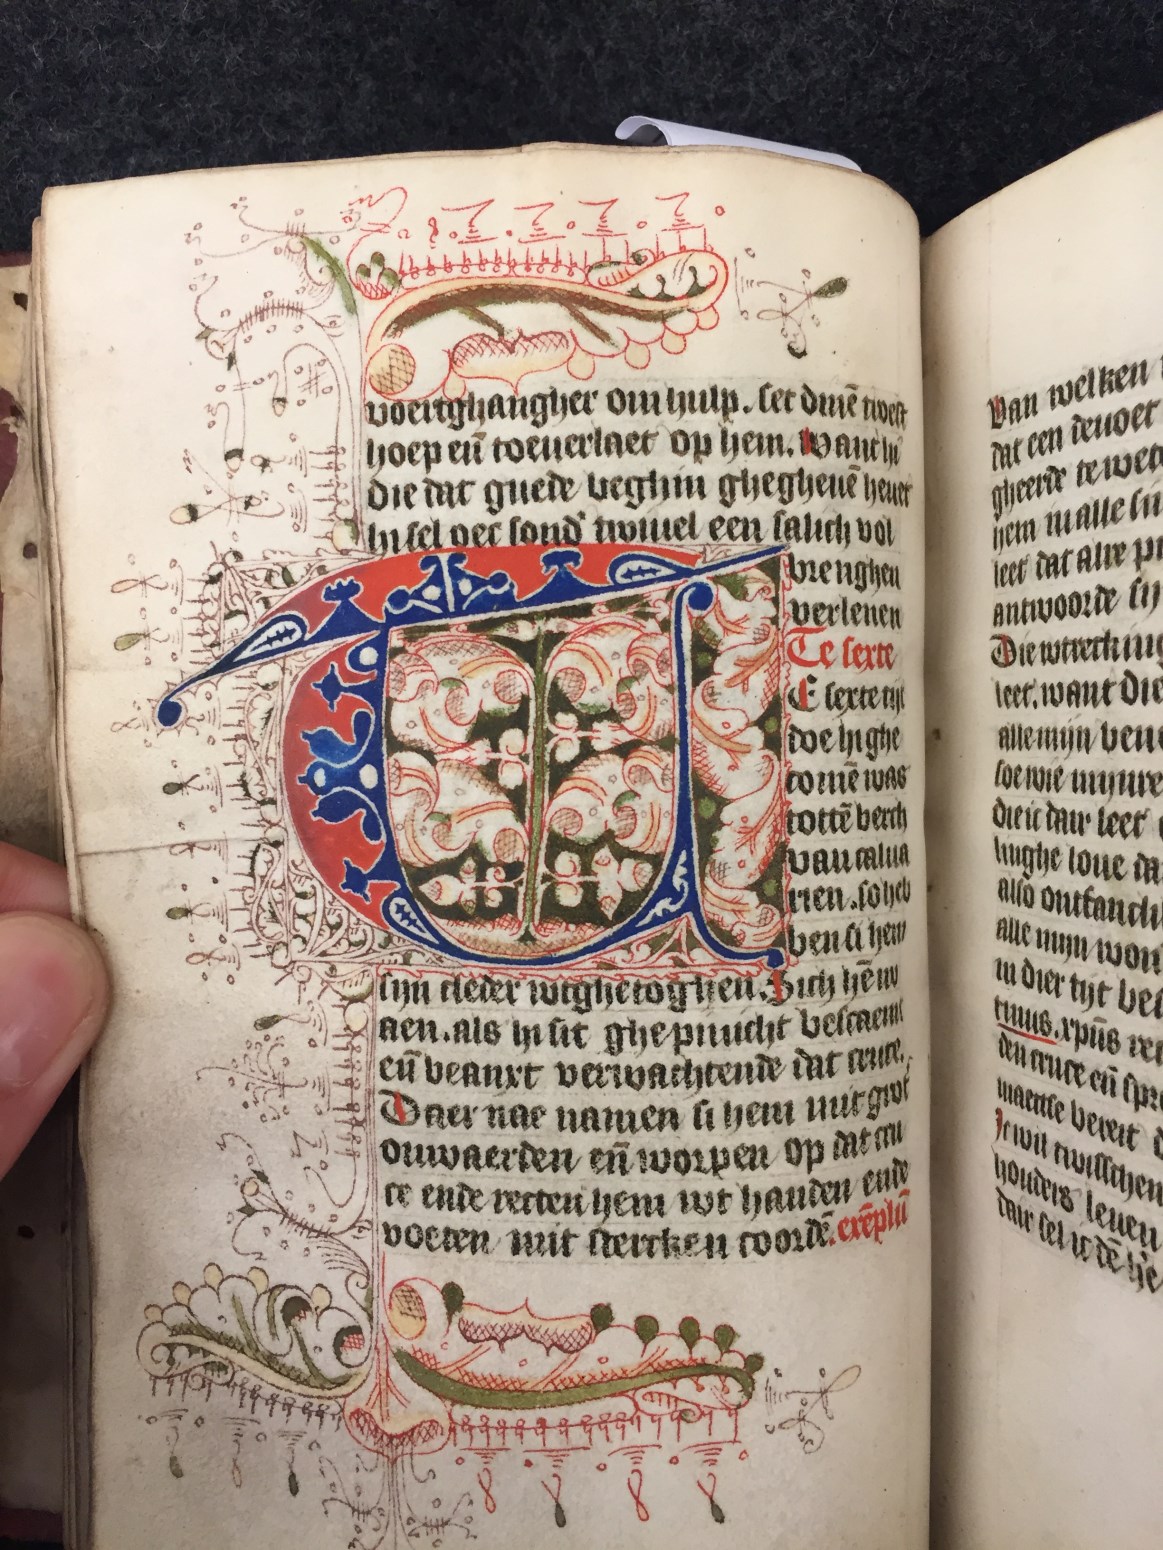 voertghangher om hulp. set dinē troest
hoep eñ toeuerlaet op hem. want hi
die dat guede beghin ghegheuē heuet
hi sel oec sond' twiuel een salich vol
brenghen
verlenen
Te sexte
TE sexte tijt
doe hi ghe
comē was
tottē berch
van calua
rien. so heb
ben si hem
sijn cleder wtghetoghen. Sich hē nv
aen. als hi sit ghepinicht bescaemt
eñ beanxt verwachtende dat cruce.
Daer nae namen si hem mit grot
onwaerden eñ worpen op dat cru
ce ende recten hem wt handen ende
voeten mit stercken coordē. exēplū
Van welken
dat een deuoet
gheerde te wet
hem in alle sij
leet dat alre
antwoorde
Die wtreckin
leet. want die
alle mijn
soe wie
die ic dair leet
linghe loue
also ontfanc
alle mijn won
in dier tijt
tinus. xpūs
den cruce eñ spr
maecte bereit
Ic wil twisschen
houders leuen
dair sel ic dē